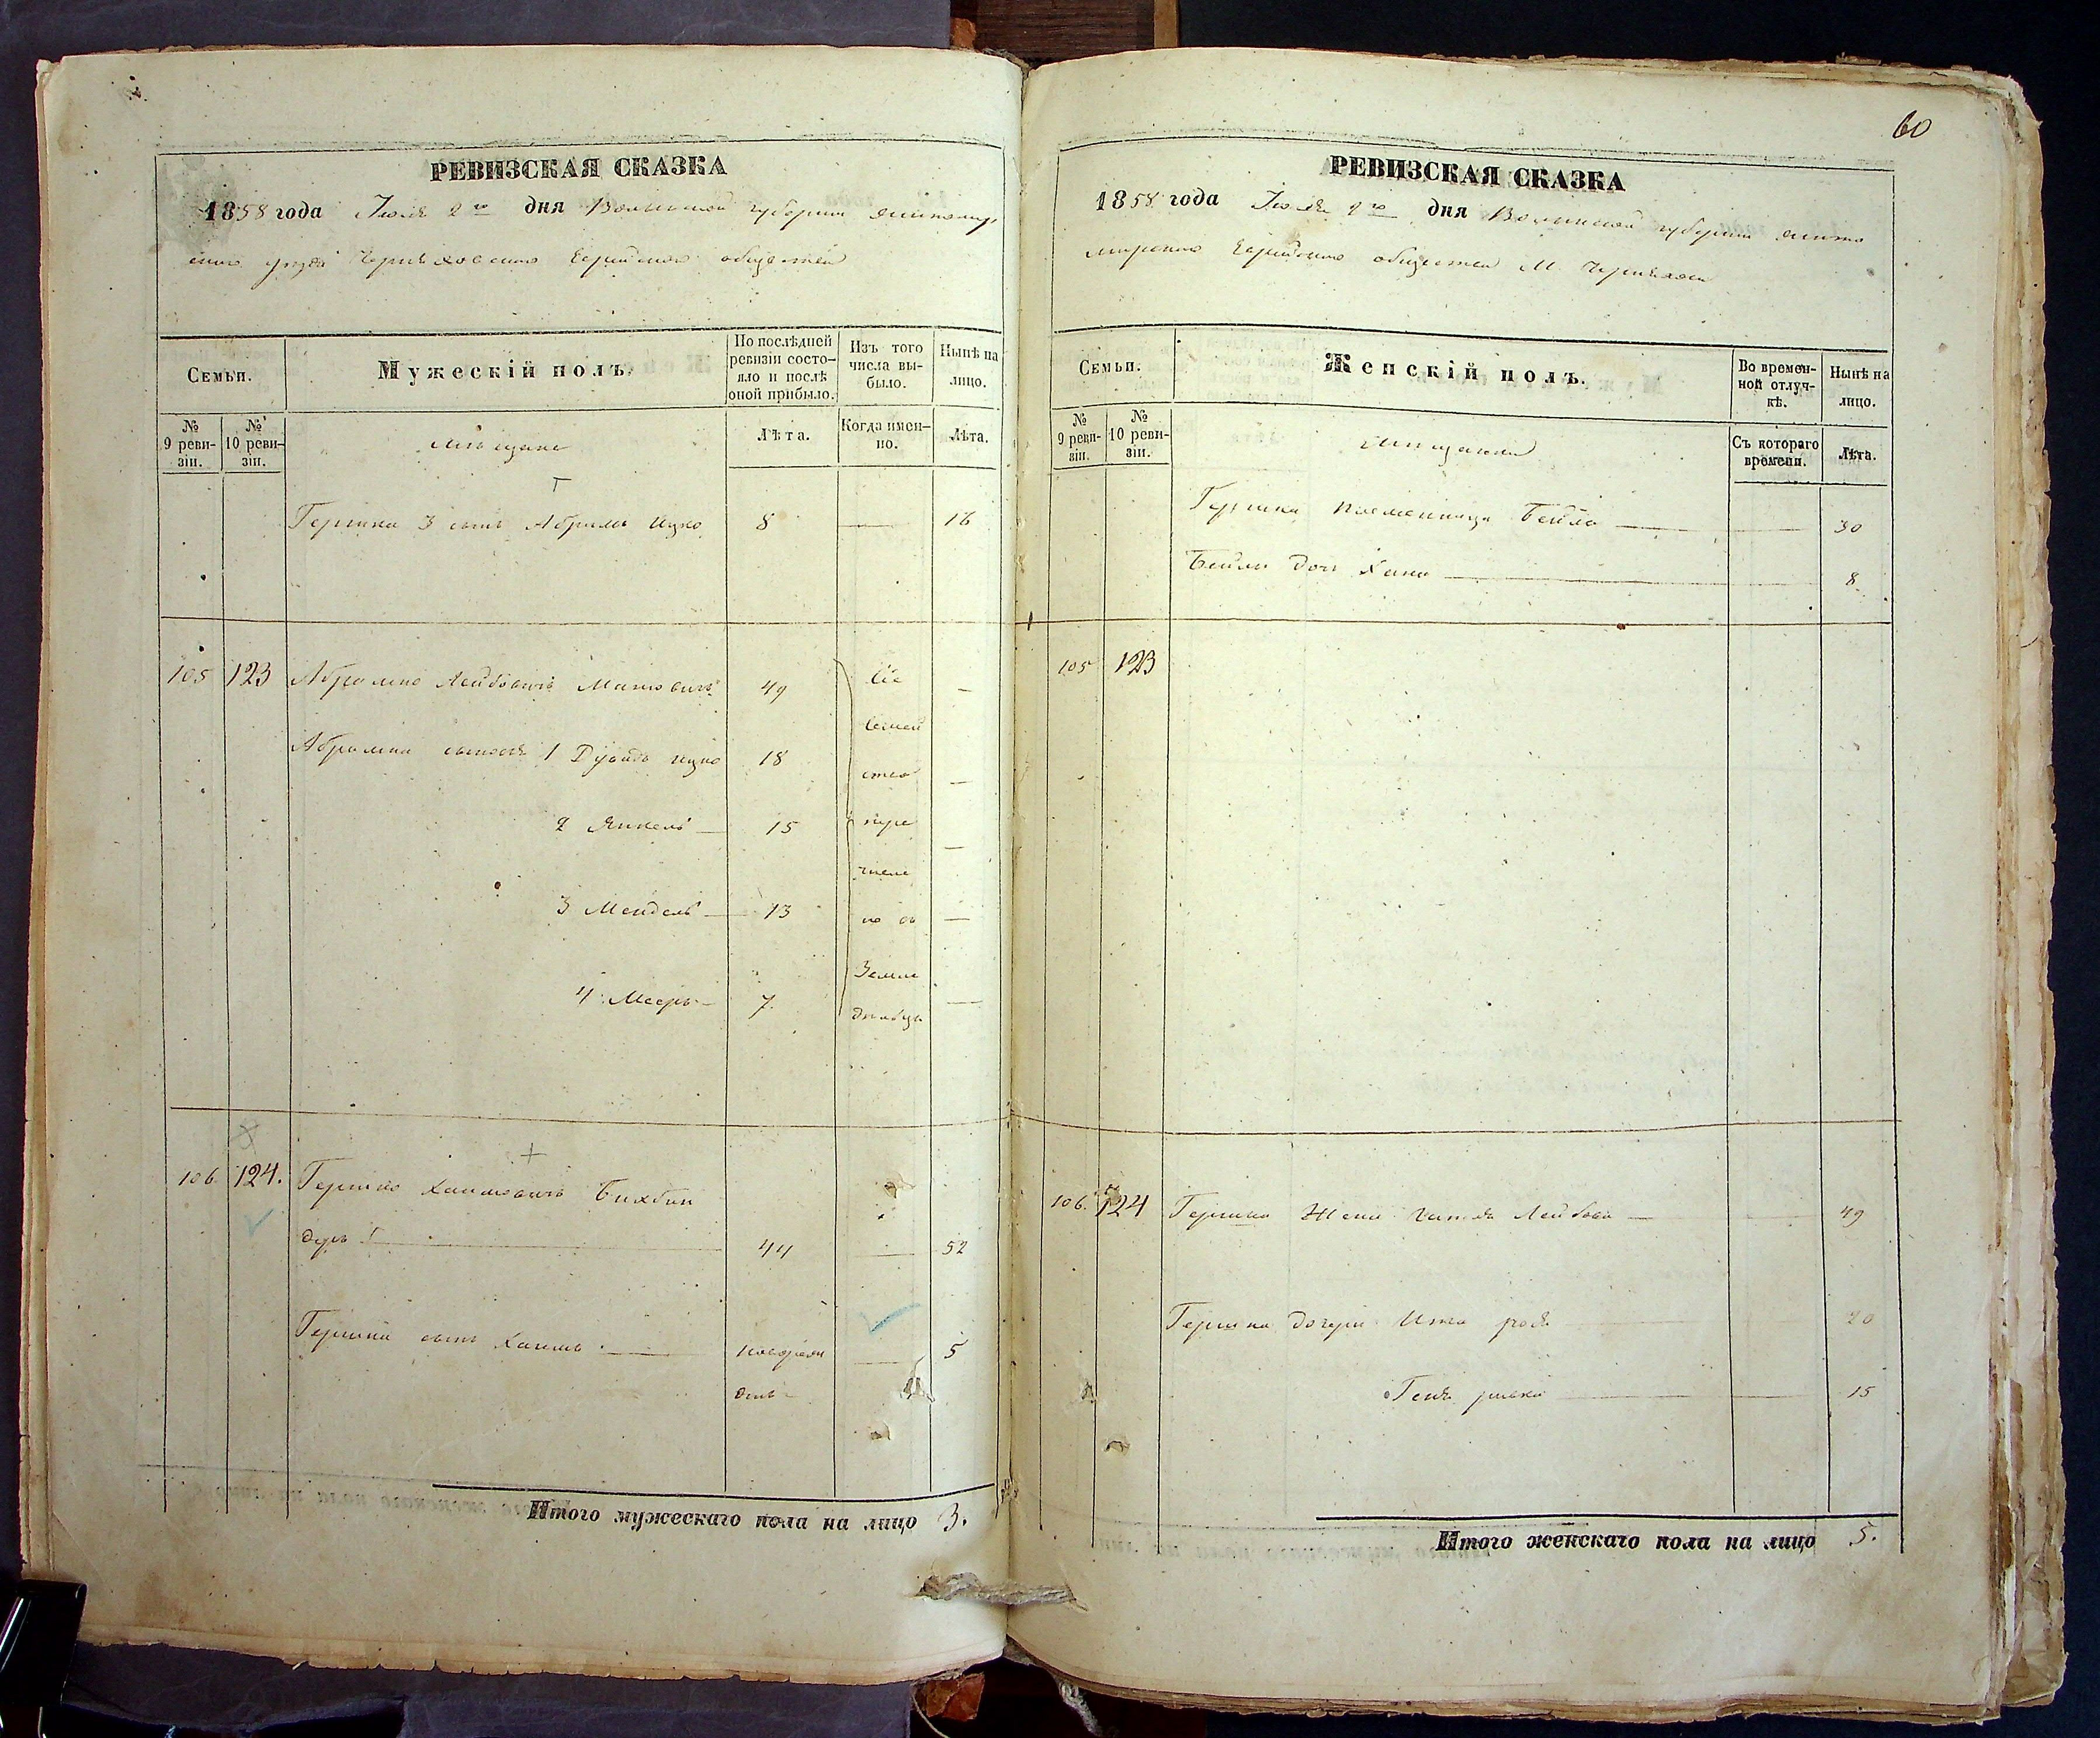 РЕВИЗСКАЯ СКАЗКА
1858 года Іюля 2го дня Волынской губерніи Житомир
скаго уезда Черняховскаго Еврейскаго общества
Семьи.
Мужескій полъ.
По послѣдней
ревизіи состо-
яло и послѣ
оной прибыло.
Изъ того
числа вы-
было.
Нынѣ на
лицо.
№
9 реви-
зіи.
№
10 реви-
зіи.
мѣщане
Лѣта.
Когда имен-
но.
Лѣта.
Гершка 3 сынъ Абрамъ Ицко 8 — 16
105 123 Абрамко Лейбовичъ 49 Сіе —
семей
Абрамка сыновя 1 Дувидъ Ицко 18
ство —
2 Янкель — 15 пере —
числе
3 Мендель — 13 но въ —
Земле
4 Мееръ — 7 —
дѣльцы
106. 124. Гершко Хаимовичъ Бихбин
деръ — 44 — 52
Гершка сынъ Хаимъ — новорож — 5
денъ
Итого мужескаго пола на лицо 3.
60
РЕВИЗСКАЯ СКАЗКА
1858 года Іюля 2го дня Волынской губерніи Жито
мирскаго Еврейскаго общества М. Черняхова
Семьи.
Женскій полъ.
Во времен-
ной отлуч-
кѣ.
Нынѣ на
лицо.
№
9 реви-
зіи.
№
10 реви-
зіи.
мѣщанки
Съ котораго
времени.
Лѣта.
Гершка племенница Бейла — 30
Бейли дочь Хана — 8
105 123
106. 124 Гершка Жена Лейбова — 49
Гершка дочери Ита рося — 20
Геня ривка — 15
Итого женскаго пола на лицо 5.